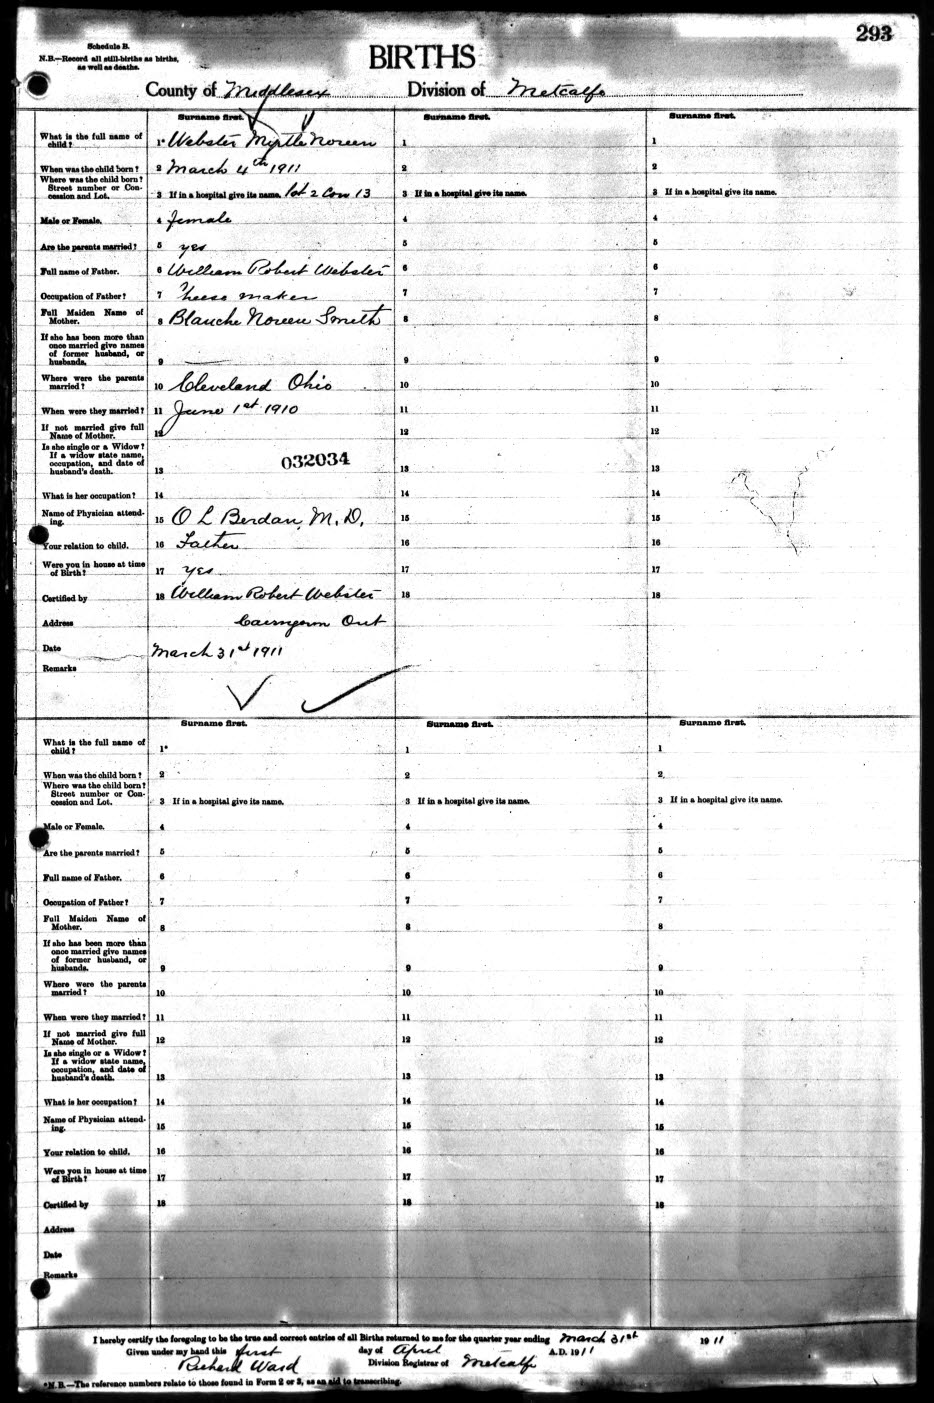 293
Schedule B.
N.B.—Record all still-births as births,
as well as deaths.
BIRTHS
County of Middlesex Division of Metcalfe
Surname first. Surname first. Surname first.
What is the full name of child? 1* Webster Myrtle Noreen 1 1
When was the child born? 2 March 4th 1911 2 2
Where was the child born? Street number or Concession and Lot. 3 If in a hospital give its name. Lot 2 Con 13 3 If in a hospital give its name. 3 If in a hospital give its name.
Male or Female. 4 female 4 4
Are the parents married? 5 yes 5 5
Full name of Father. 6 William Robert Webster 6 6
Occupation of Father? 7 Cheese maker 7 7
Full Maiden Name of Mother. 8 Blanche Noreen Smith 8 8
If she has been more than once married give names of former husband, or husbands. 9 — 9 9
Where were the parents married? 10 Cleveland Ohio 10 10
When were they married? 11 June 1st 1910 11 11
If not married give full Name of Mother. 12 12 12
Is she single or a Widow? If a widow state name, occupation, and date of husband's death. 13 032034 13 13
What is her occupation? 14 14 14
Name of Physician attending. 15 O L Berdan, M.D. 15 15
Your relation to child. 16 Father 16 16
Were you in house at time of Birth? 17 yes 17 17
Certified by 18 William Robert Webster 18 18
Address Cairngorm Ont
Date March 31st 1911
Remarks
Surname first. Surname first. Surname first.
What is the full name of child? 1* 1 1
When was the child born? 2 2 2
Where was the child born? Street number or Concession and Lot. 3 If in a hospital give its name. 3 If in a hospital give its name. 3 If in a hospital give its name.
Male or Female. 4 4 4
Are the parents married? 5 5 5
Full name of Father. 6 6 6
Occupation of Father? 7 7 7
Full Maiden Name of Mother. 8 8 8
If she has been more than once married give names of former husband, or husbands. 9 9 9
Where were the parents married? 10 10 10
When were they married? 11 11 11
If not married give full Name of Mother. 12 12 12
Is she single or a Widow? If a widow state name, occupation, and date of husband's death. 13 13 13
What is her occupation? 14 14 14
Name of Physician attending. 15 15 15
Your relation to child. 16 16 16
Were you in house at time of Birth? 17 17 17
Certified by 18 18 18
Address
Date
Remarks
I hereby certify the foregoing to be the true and correct entries of all Births returned to me for the quarter year ending March 31st 1911
Given under my hand this first day of April A.D. 1911
Richard Ward Division Registrar of Metcalfe
*N.B.—The reference numbers relate to those found in Form 2 or 3, as an aid to transcribing.